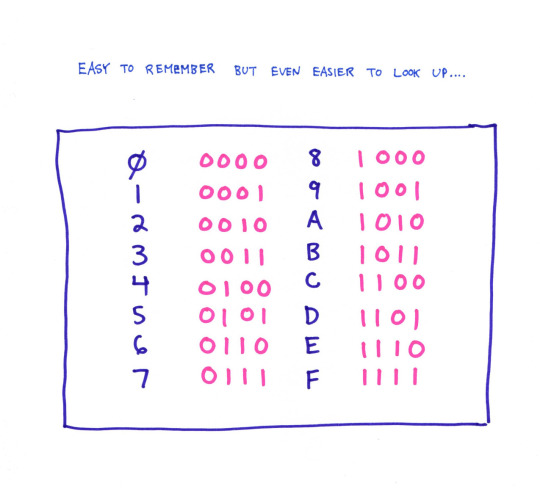 EASY TO REMEMBER BUT EVEN EASIER TO LOOK UP....
0 0000 8 1000
1 0001 9 1001
2 0010 A 1010
3 0011 B 1011
4 0100 C 1100
5 0101 D 1101
6 0110 E 1110
7 0111 F 1111